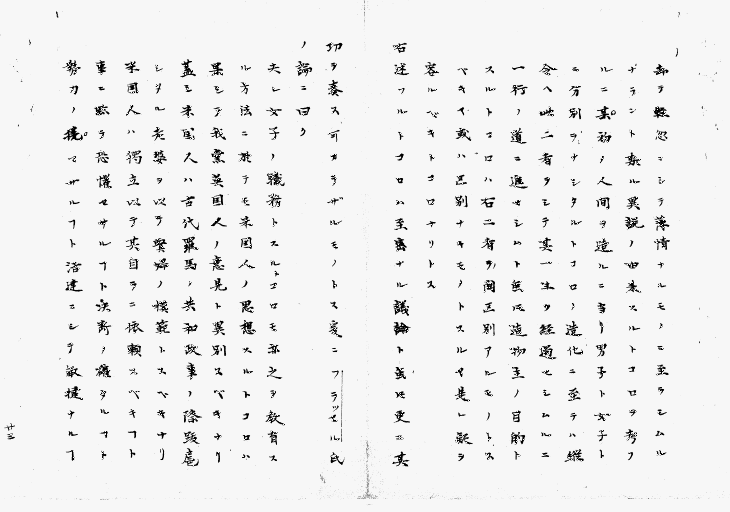 却テ軽忽ニシテ薄情ナルモノニ至ラシムル
ナラント斯ル異説ノ由来スルトコロヲ考フ
ルニ其初メ人間ヲ造ルニ当リ男子ト女子ト
ニ分別ヲナシタルトコロノ造化ニ至テハ縦
令ヘ此二者ヲシテ其一生ヲ経過セシムルニ
一行ノ道ニ進セシムト無トモ造物主ノ目的ト
スルトコロハ右二者ヲ間区別アルモノトス
ベキイ或ハ区別ナキモノトスルヤ是レ疑ヲ
容ルベキトコロナリトス
右述フルトコロハ至当ナル議論ト雖トモ更ニ其
功ヲ奏ス可カラザルモノトス爰ニフラッセル氏
ノ論ニ曰ク
夫レ女子ノ職務トスルトコロモ亦之ヲ教育ス
ル方法ニ於テモ米国人ノ思想スルトコロハ
果シテ我党英国人ノ意見ト異別スベキナリ
蓋シ米国人ハ古代羅馬ノ共和政事ノ際
シタル老婆ヲ以テ賢婦ノ模範トスベキナリ
米国人ハ独立以テ其自ラニ依頼スベキフト
事ニ臨テ恐懼セサルフト決断ノ確タルフト
勢力ノ撓マザルフト活達ニシテ敏捷ナルフ
廿三